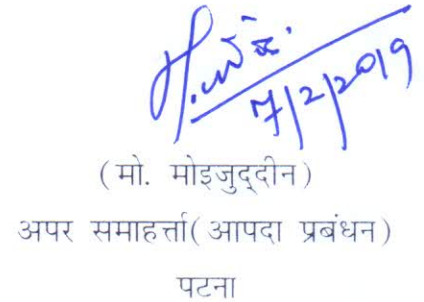 7/2/2019
(मो. मोइजुद्दीन)
अपर समाहर्त्ता(आपदा प्रबंधन)
पटना